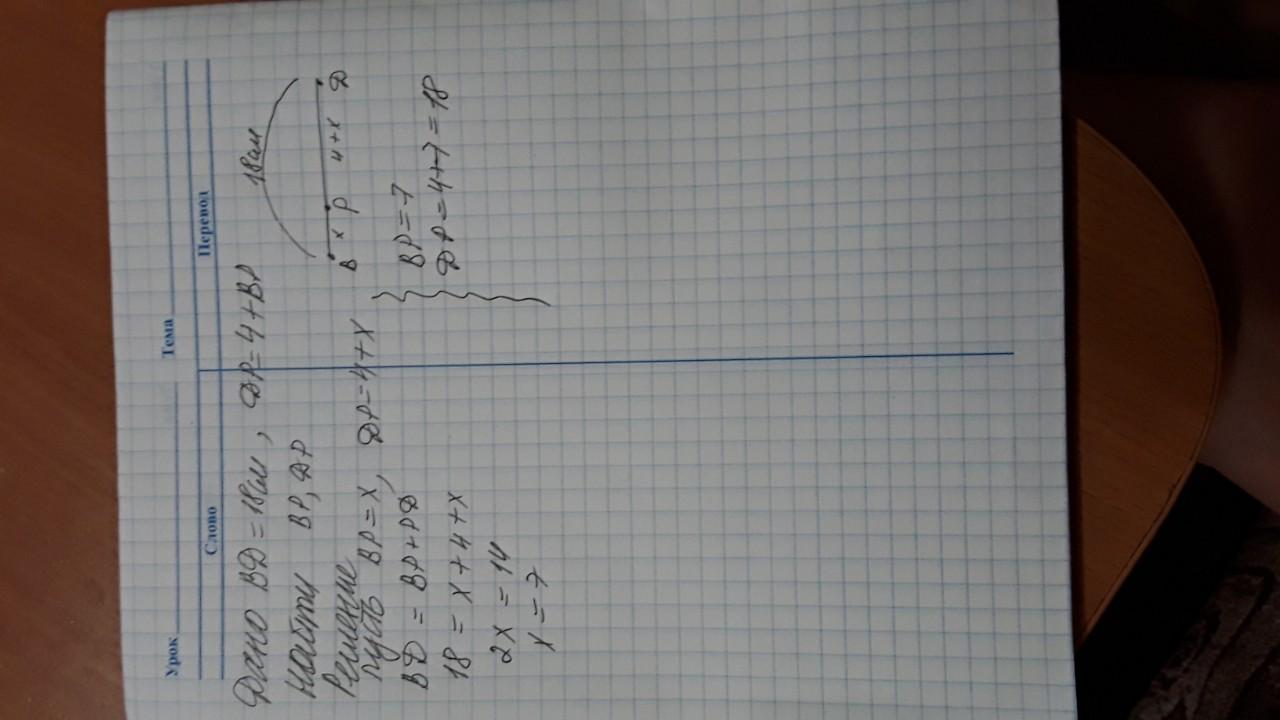 Урок Тема
Слово Перевод
Дано ВД = 18см, ДР = 4 + ВР
Найти ВР, ДР
18см
В х Р 4+х Д
Решение
Пусть ВР = х, ДР = 4 + х
ВД = ВР + РД
18 = х + 4 + х
2х = 14
х = 7
ВР = 7
ДР = 4 + 7 = 18